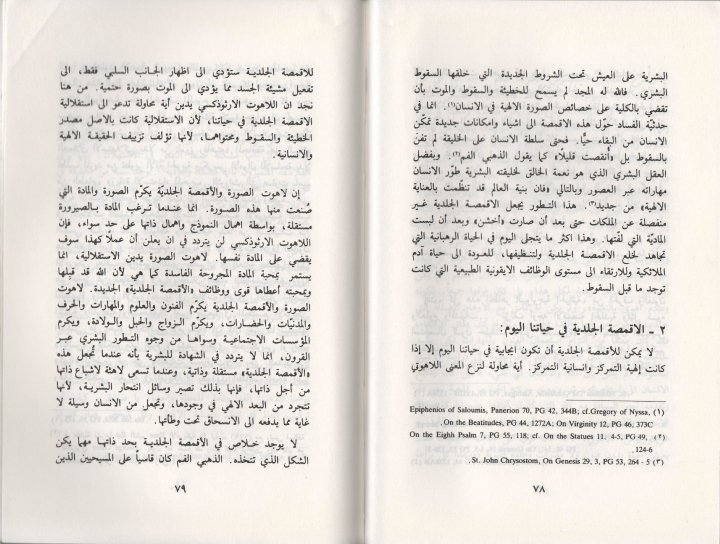 البشرية على العيش تحت الشروط الجديدة التي خلقها السقوط
البشري. فالله له المجد لم يسمح للخطيئة والسقوط والموت بأن
تقضي بالكلية على خصائص الصورة الالهية في الانسان(١). انما في
حدثيّة الفساد حوّل هذه الاقمصة الى اشياء وامكانات جديدة تمكّن
الانسان من البقاء حيًّا. فحتى سلطة الانسان على الخليقة لم تفنَ
بالسقوط بل «أنقصت قليلًا» كما يقول الذهبي الفم(٢). وبفضل
العقل البشري الذي هو نعمة الخالق لخليقته البشرية طوّر الانسان
مهاراته عبر العصور وبالتالي «فان بنية العالم قد تنظّمت بالعناية
الالهية» من جديد(٣). هذا التطور يجعل الاقمصة الجلدية غير
منفصلة عن الملكات حتى بعد أن صارت «أخشن» وبعد أن لبست
الماديّة التي لفّتها. وهذا اكثر ما يتجلى اليوم في الحياة الرهبانية التي
تجاهد لخلع الاقمصة الجلدية ولتنظيفها، للعودة الى حياة آدم
الملائكية وللارتقاء الى مستوى الوظائف الايقونية الطبيعية التي كانت
توجد ما قبل السقوط.
٢ - الاقمصة الجلدية في حياتنا اليوم:
لا يمكن للأقمصة الجلدية أن تكون ايجابية في حياتنا اليوم إلا إذا
كانت إلهية التمركز وانسانية التمركز. أية محاولة لنزع المعنى اللاهوتي
(١) Epiphenios of Saloumis, Panerion 70, PG 42, 344B; cf.Gregory of Nyssa,
On the Beatitudes, PG 44, 1272A; On Virginity 12, PG 46, 373C.
(٢) On the Eighth Psalm 7, PG 55, 118; cf. On the Statues 11, 4-5, PG 49,
124-6.
(٣) St. John Chrysostom, On Genesis 29, 3, PG 53, 264 - 5.
٧٨
للاقمصة الجلدية ستؤدي الى اظهار الجانب السلبي فقط، الى
تفعيل مشيئة الجسد مما يؤدي الى الموت بصورة حتمية. من هنا
نجد ان اللاهوت الارثوذكسي يدين أية محاولة تدعو الى استقلالية
الاقمصة الجلدية في حياتنا، لأن الاستقلالية كانت بالاصل مصدر
الخطيئة والسقوط ومحتواهما، لأنها تؤلف تزييف الحقيقة الالهية
والانسانية.
إن لاهوت الصورة والأقمصة الجلديّة يكرّم الصورة والمادة التي
صُنعت منها هذه الصورة. انما عندما ترغب المادة بالصيرورة
مستقلة، بواسطة اهمال النموذج واهمال ذاتها على حد سواء، فإن
اللاهوت الارثوذكسي لن يتردد في ان يعلن أن عملًا كهذا سوف
يقضي على المادة نفسها. لاهوت الصورة يدين الاستقلالية، انما
يستمر بمحبة المادة المجروحة الفاسدة كما هي لأن الله قد قبلها
وبمحبته أعطاها قوى ووظائف «الأقمصة الجلدية» الجديدة. لاهوت
الصورة والأقمصة الجلدية يكرّم الفنون والعلوم والمهارات والحرف
والمدنيّات والحضارات، ويكرّم الزواج والحبل والولادة، ويكرم
المؤسسات الاجتماعية وسواها من وجوه التطور البشري عبر
القرون، انما لا يتردد في الشهادة للبشرية بأنه عندما تُجعل هذه
«الأقمصة الجلدية» مستقلة وذاتية، وعندما تسعى لاهثة لاشباع ذاتها
من أجل ذاتها، فإنها بذلك تصير وسائل انتحار البشرية، لأنها
تتجرد من البعد الالهي في وجودها، وتجعل من الانسان وسيلة لا
غاية مما يدفعه الى الانسحاق تحت وطأتها.
لا يوجد خلاص في الأقمصة الجلدية بحد ذاتها مهما يكن
الشكل الذي تتخذه. الذهبي الفم كان قاسياً على المسيحيين الذين
٧٩